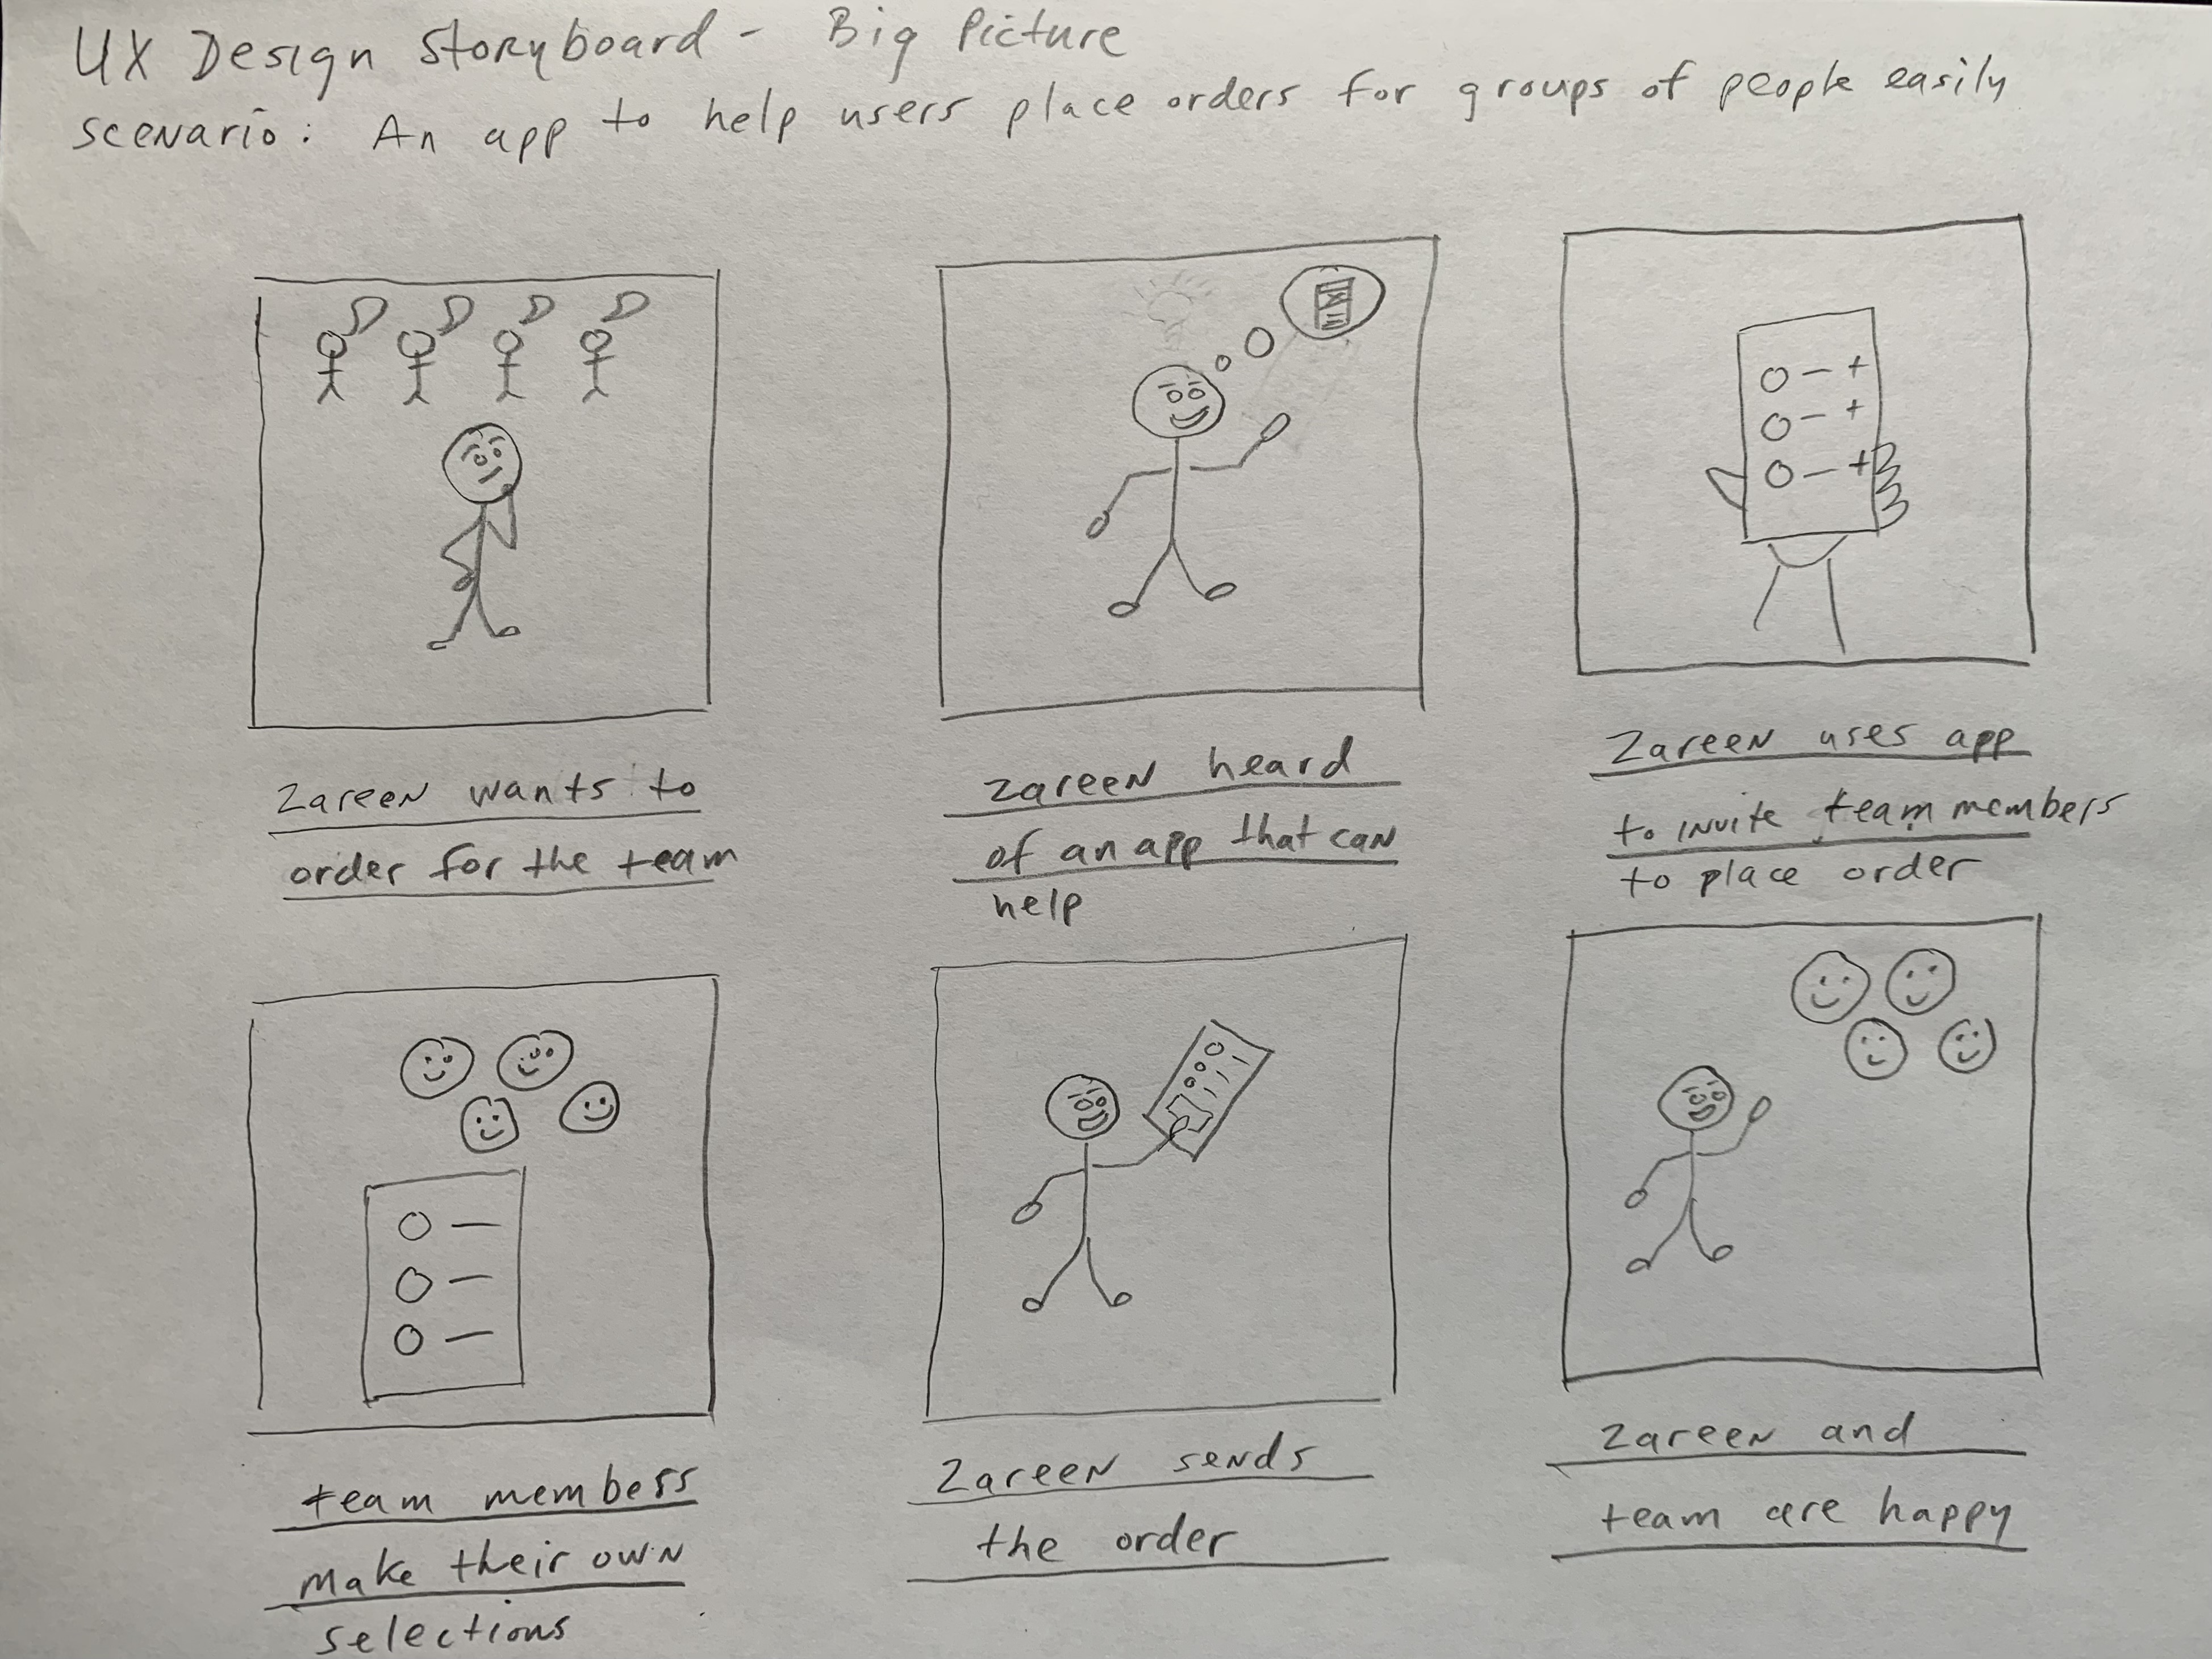 UX Design Storyboard - Big Picture
scenario: An app to help users place orders for groups of people easily
Zareen wants to
order for the team
Zareen heard
of an app that can
help
Zareen uses app
to invite team members
to place order
team members
make their own
selections
Zareen sends
the order
Zareen and
team are happy